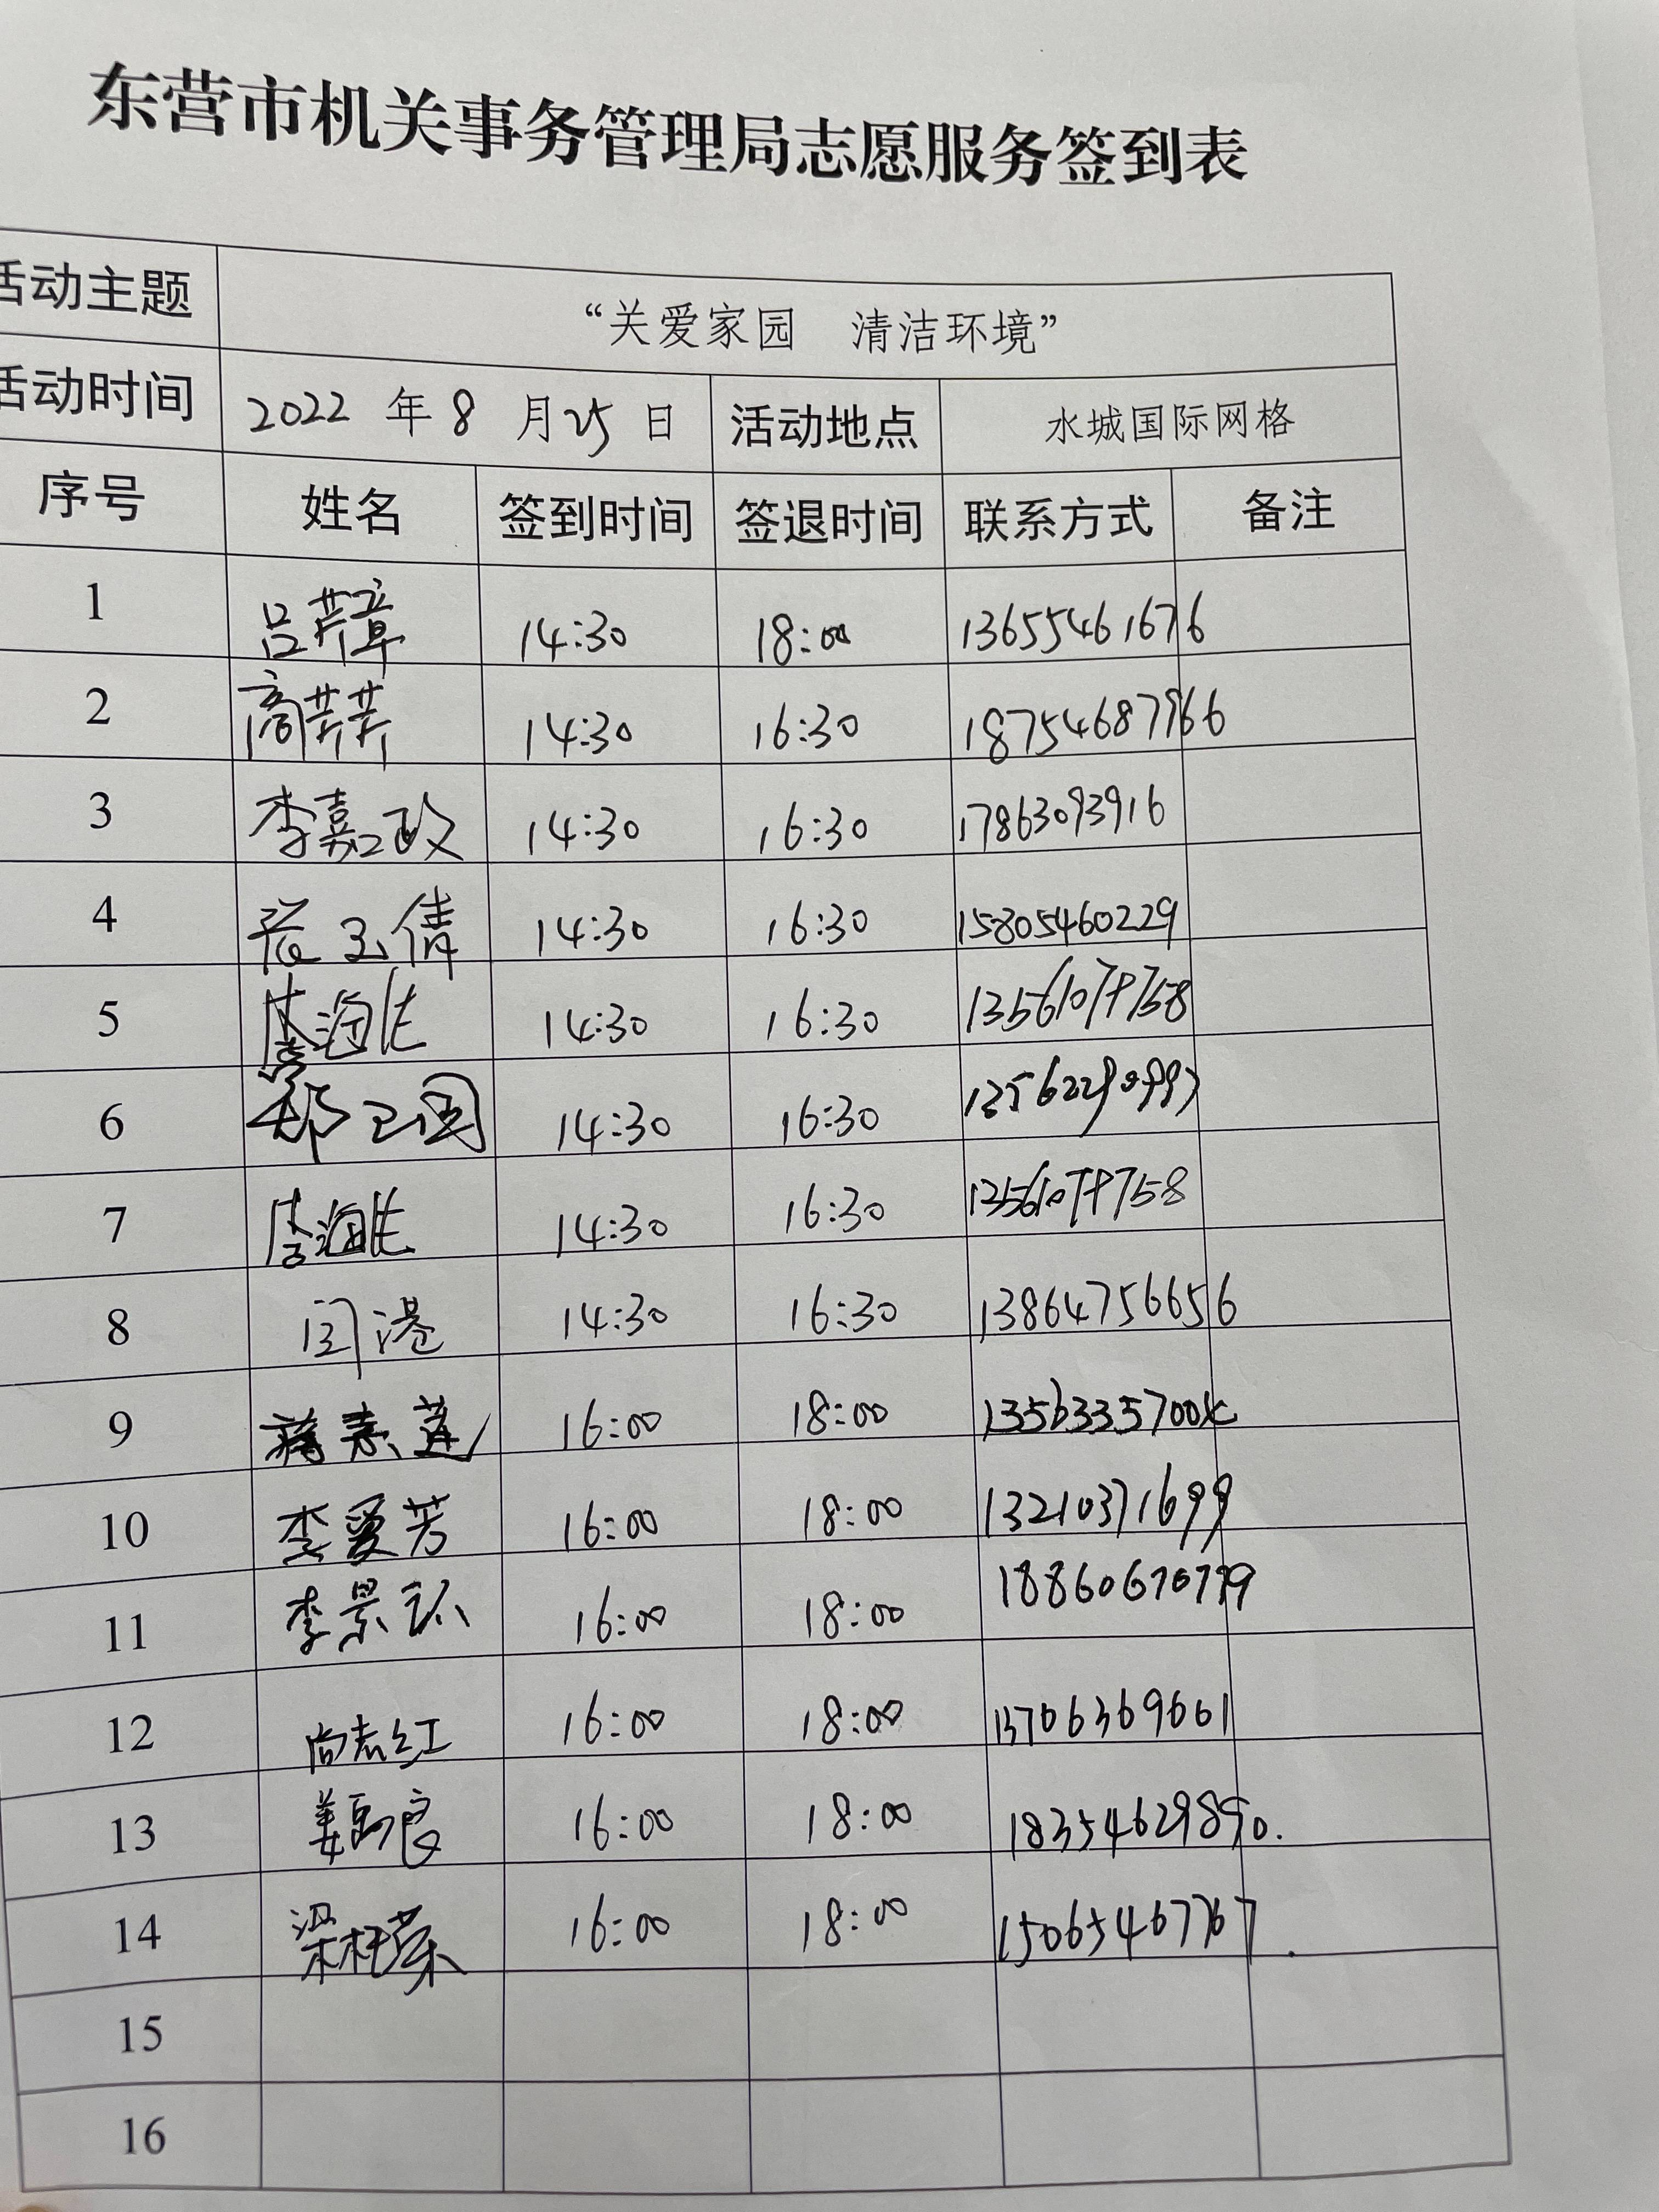 东营市机关事务管理局志愿服务签到表
活动主题 “关爱家园 清洁环境”
活动时间 2022 年 8 月 25 日 活动地点 水城国际网格
序号 姓名 签到时间 签退时间 联系方式 备注
1 吕芹章 14:30 18:00 13655461676
2 商芹芹 14:30 16:30
3 李嘉政 14:30 16:30 17863093916
4 张玉倩 14:30 16:30 15805460229
5 14:30 16:30
6 郑卫国 14:30 16:30
7 14:30 16:30
8 闫港 14:30 16:30 13864756656
9 16:00 18:00
10 李爱芳 16:00 18:00 13210371699
11 李景环 16:00 18:00
12 尚志红 16:00 18:00 13706369661
13 16:00 18:00 18354629890.
14 16:00 18:00 15065467767
15
16